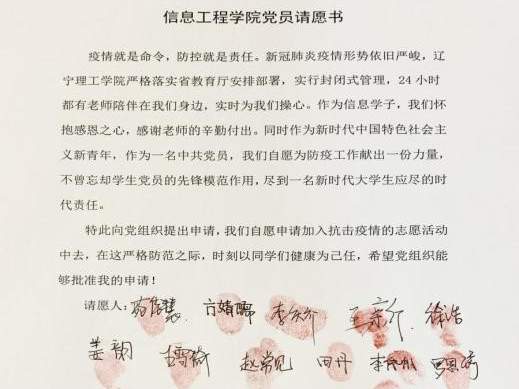 信息工程学院党员请愿书
疫情就是命令，防控就是责任。新冠肺炎疫情形势依旧严峻，辽
宁理工学院严格落实省教育厅安排部署，实行封闭式管理，24 小时
都有老师陪伴在我们身边，实时为我们操心。作为信息学子，我们怀
抱感恩之心，感谢老师的辛勤付出。同时作为新时代中国特色社会主
义新青年，作为一名中共党员，我们自愿为防疫工作献出一份力量，
不曾忘却学生党员的先锋模范作用，尽到一名新时代大学生应尽的时
代责任。
特此向党组织提出申请，我们自愿申请加入抗击疫情的志愿活动
中去，在这严格防范之际，时刻以同学们健康为己任，希望党组织能
够批准我的申请！
请愿人：
田丹